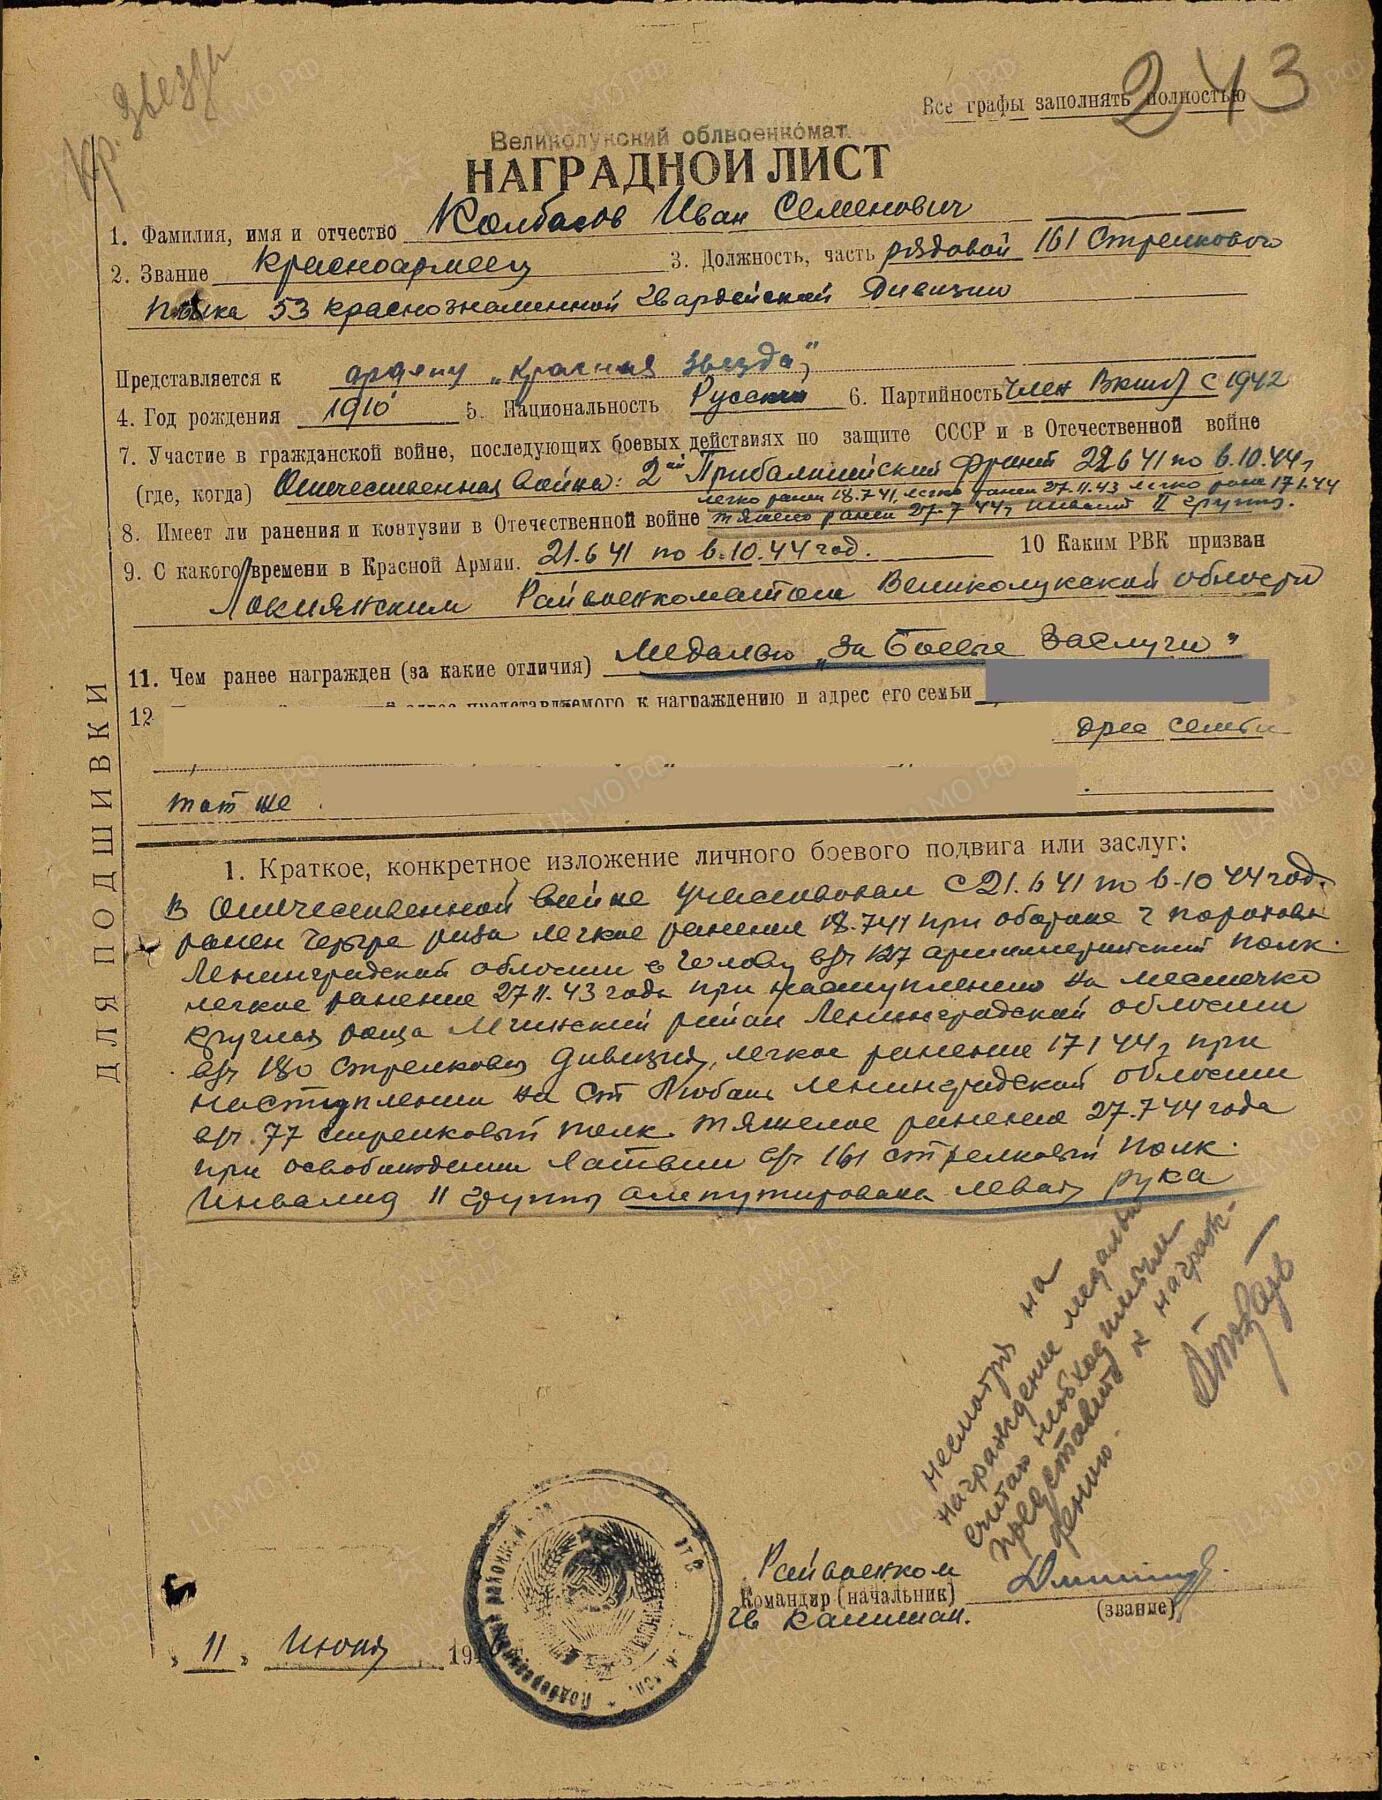 Кр. Звезды
243
Все графы заполнять полностью
Великолукский облвоенкомат
НАГРАДНОЙ ЛИСТ
1. Фамилия, имя и отчество Колбасов Иван Семенович
2. Звание Красноармеец 3. Должность, часть рядовой 161 Стрелкового
полка 53 краснознаменной Гвардейской Дивизии
Представляется к ордену „Красная звезда"
4. Год рождения 1910 5. Национальность Русский 6. Партийность Член ВКП(б) с 1942
7. Участие в гражданской войне, последующих боевых действиях по защите СССР и в Отечественной войне
(где, когда) Отечественная война: 2ой Прибалтийский фронт 22 6 41 по 6.10.44г
легко ранен 18.7.41, легко ранен 27.11.43 легко ранен 17 1.44
8. Имеет ли ранения и контузии в Отечественной войне тяжело ранен 27.7 44г инвалид II группы.
9. С какого времени в Красной Армии. 21.6 41 по 6.10.44 год. 10 Каким РВК призван
Локнянским Райвоенкоматом Великолукской области
11. Чем ранее награжден (за какие отличия) Медалью „За Боевые Заслуги"
12 представляемого к награждению и адрес его семьи
дрес семьи
тот же
ДЛЯ ПОДШИВКИ
1. Краткое, конкретное изложение личного боевого подвига или заслуг:
В Отечественной войне участвовал с 21.6 41 по 6.10 44 год.
ранен Четыре раза легкое ранение 18.7 41 при обороне г Порохов
Ленинградской области в голову в/ч 127 артиллерийский полк.
легкое ранение 27 11. 43 года при наступлении на местечко
круглая роща Мгинский район Ленинградской области
в/ч 180 стрелковая дивизия, легкое ранение 17 1 44г при
наступлении на Ст Любань Ленинградской области
в/ч. 77 стрелковый полк. тяжелое ранение 27.7 44 года
при освобождении Латвии в/ч 161 стрелковый полк.
Инвалид II группы ампутирована левая рука
несмотря на
награждение медалью
считаю необходимым
представить к награж-
дению.
Райвоенком
Командир (начальник)
Гв капитан.
(звание)
„ 11 „ Июня 194